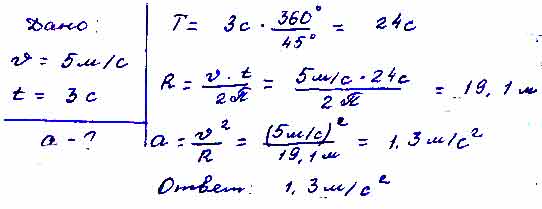 Дано:
v = 5 м/с
t = 3 с
a - ?
T = 3с · 360°/45° = 24с
R = v · t / 2π = 5 м/с · 24с / 2π = 19,1 м
a = v²/R = (5 м/с)²/19,1 м = 1,3 м/с²
Ответ: 1,3 м/с²